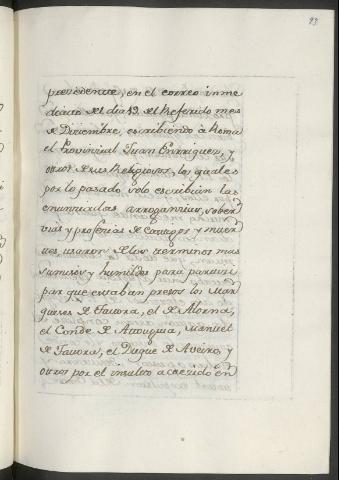 93
precedencia, en el correo inme
diato del dia 19. del Referido mes
de Diciembre, escribiendo à Roma
el Provincial Juan Enrriquez, y
otros de sus Religiosos, los quales
por lo pasado solo escribian las
enunciadas arrogancias, sober
vias y profecias de castigos y muer
tes, usaron de los terminos mas
sumisos y humildes para partici
par que estaban presos los Mar
queses de Tavora, el de Alorna,
el Conde de Atouguia, Manuel
de Tavora, el Duque de Aveiro, y
otros por el insulto acaecido en